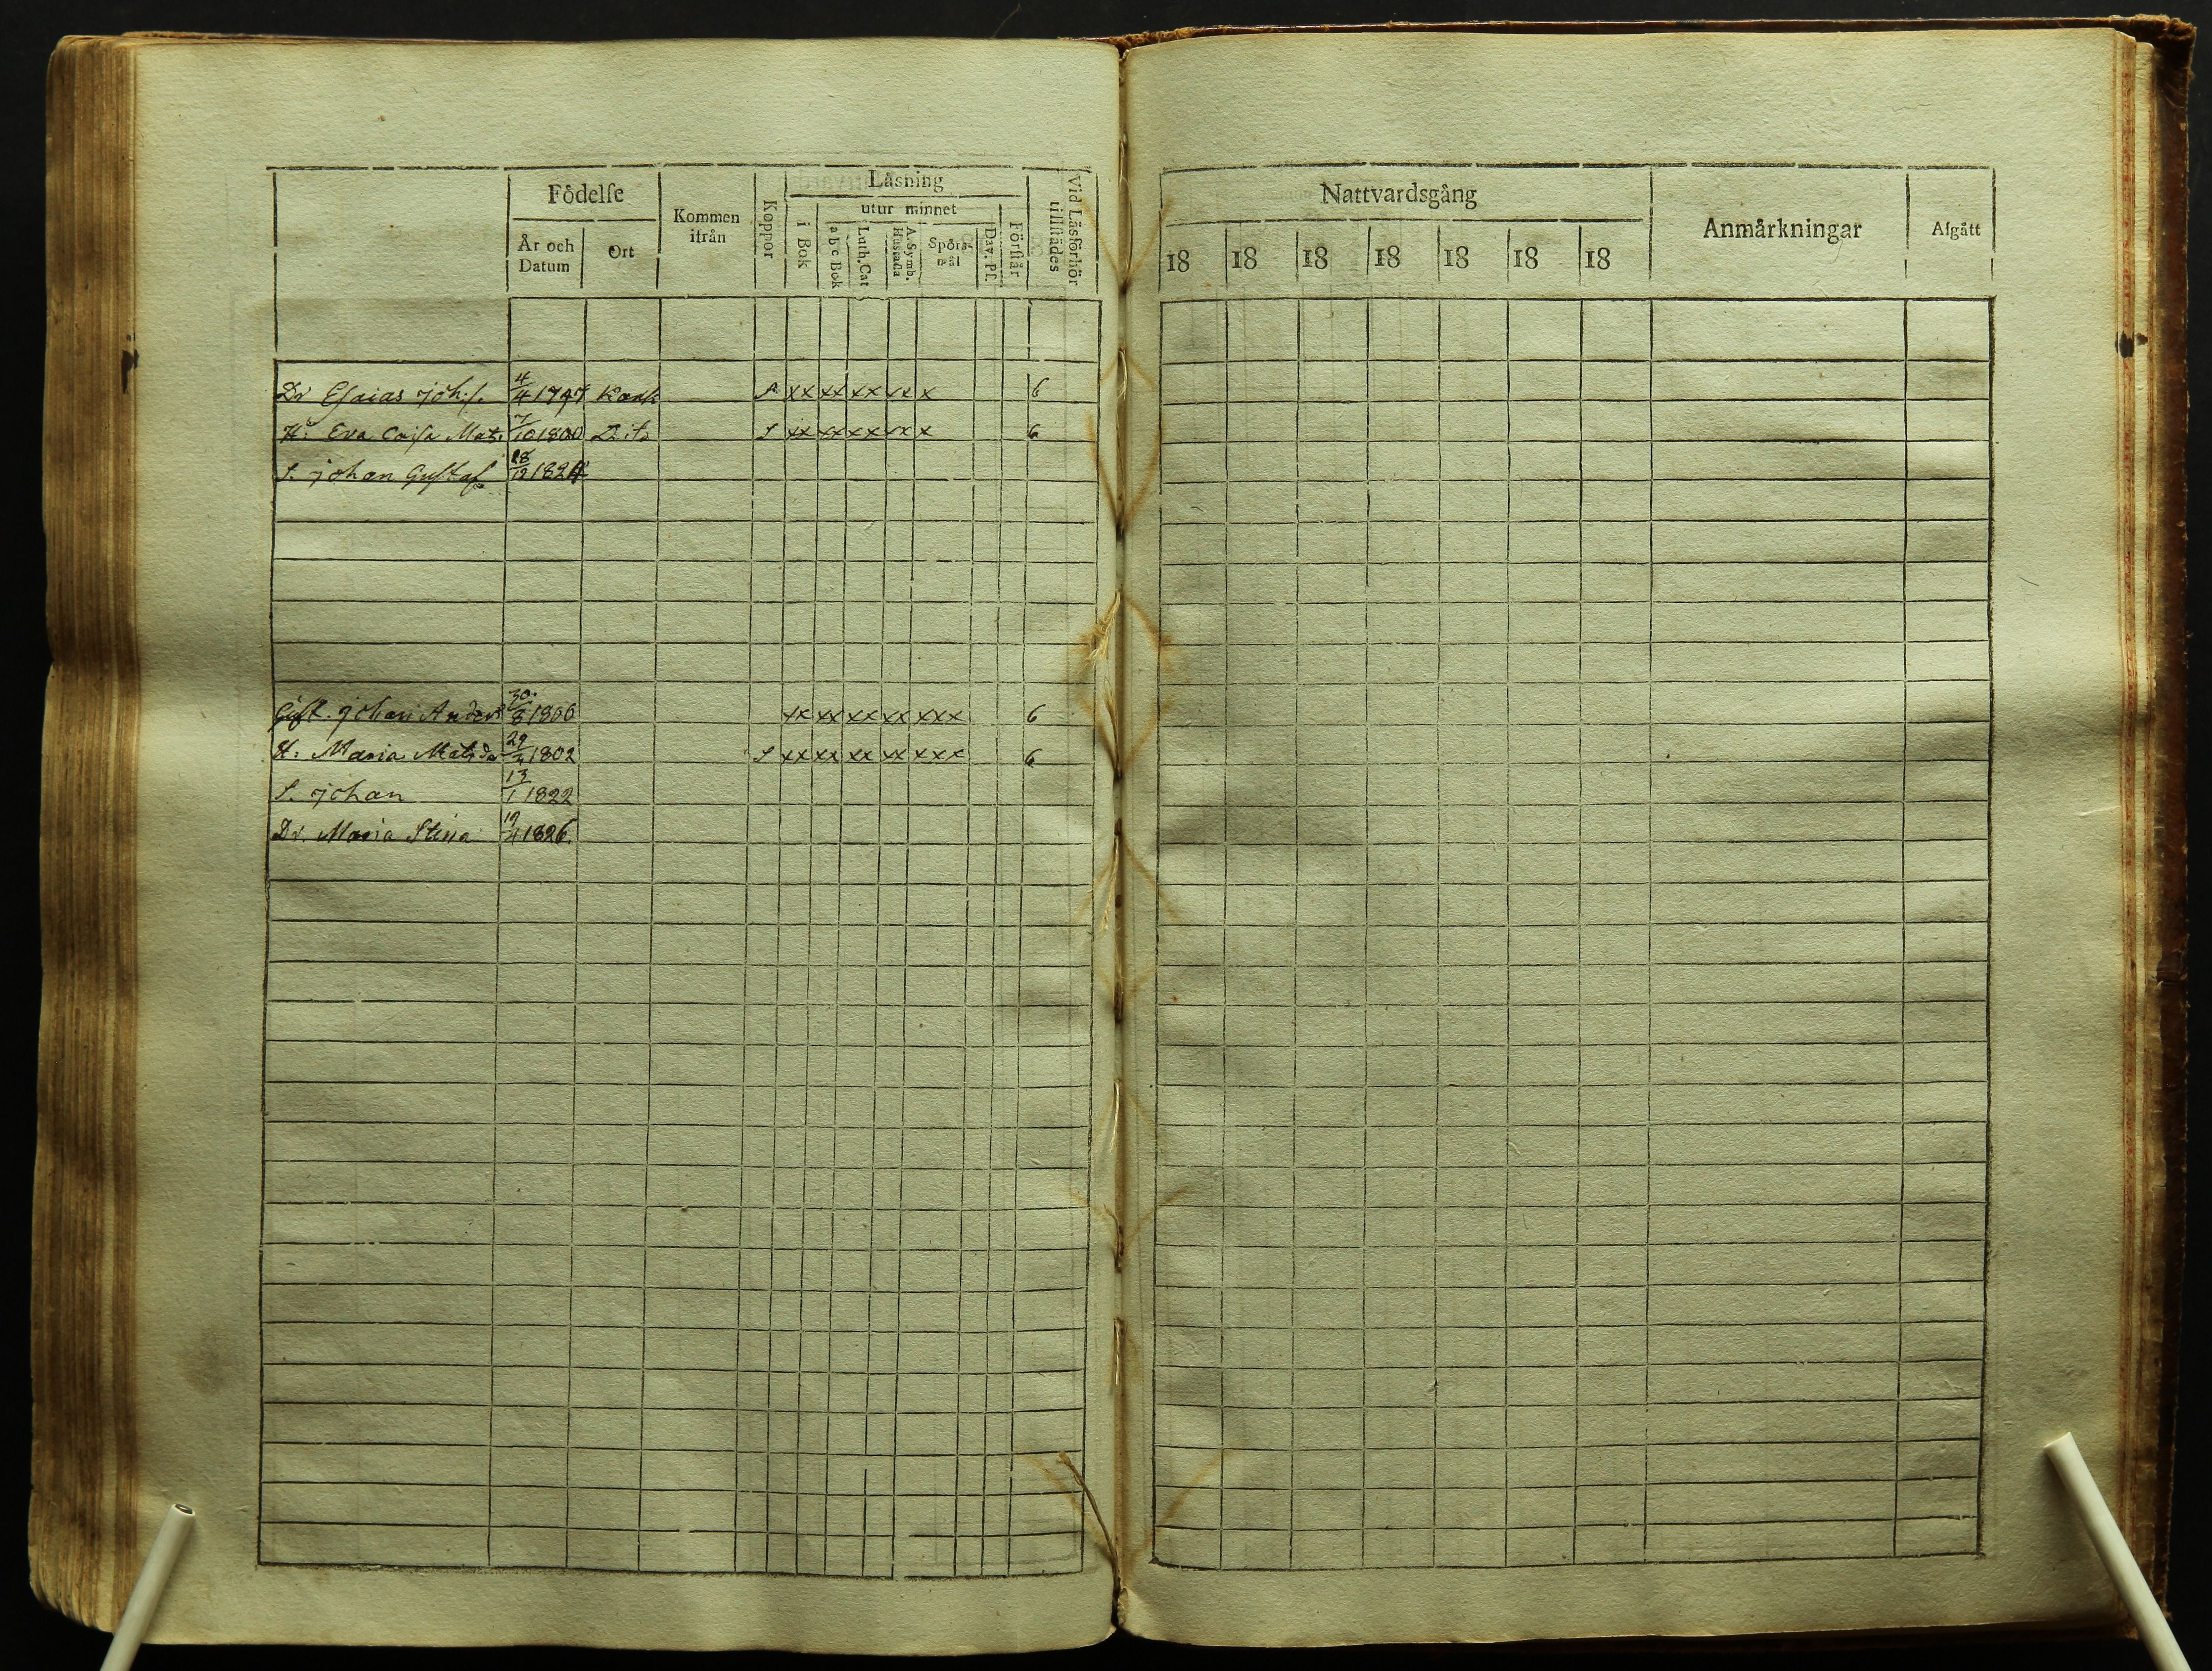 Födelſe
Kommen ifrån
Koppor
Läsning
Vid Läsförhör tillſtädes
År och Datum
Ort
i Bok
utur minnet
Förſtår
abc Bok
Luth. Cat
A. Symb. Huſtafla
Spörs-mål
Dav. Pſ.
Nattvardsgång
Anmärkningar
Afgått
18 18 18 18 18 18 18
Dr Eſaias Joh:ſ. 4/4 1797 xx xx xx xx x 6
H: Eva Caiſa Mats 7/10 1800 Dito S xx xx xx xx x 6
S. Johan Guſtaf 18/12 1824
Guſt. Johan Anders 30/8 1806 xx xx xx xx xxx 6
H: Maria Matsdr 29/4 1802 S xx xx xx xx xxx 6
S. Johan 13/1 1822
Dr. Maria Stina 19/4 1826.